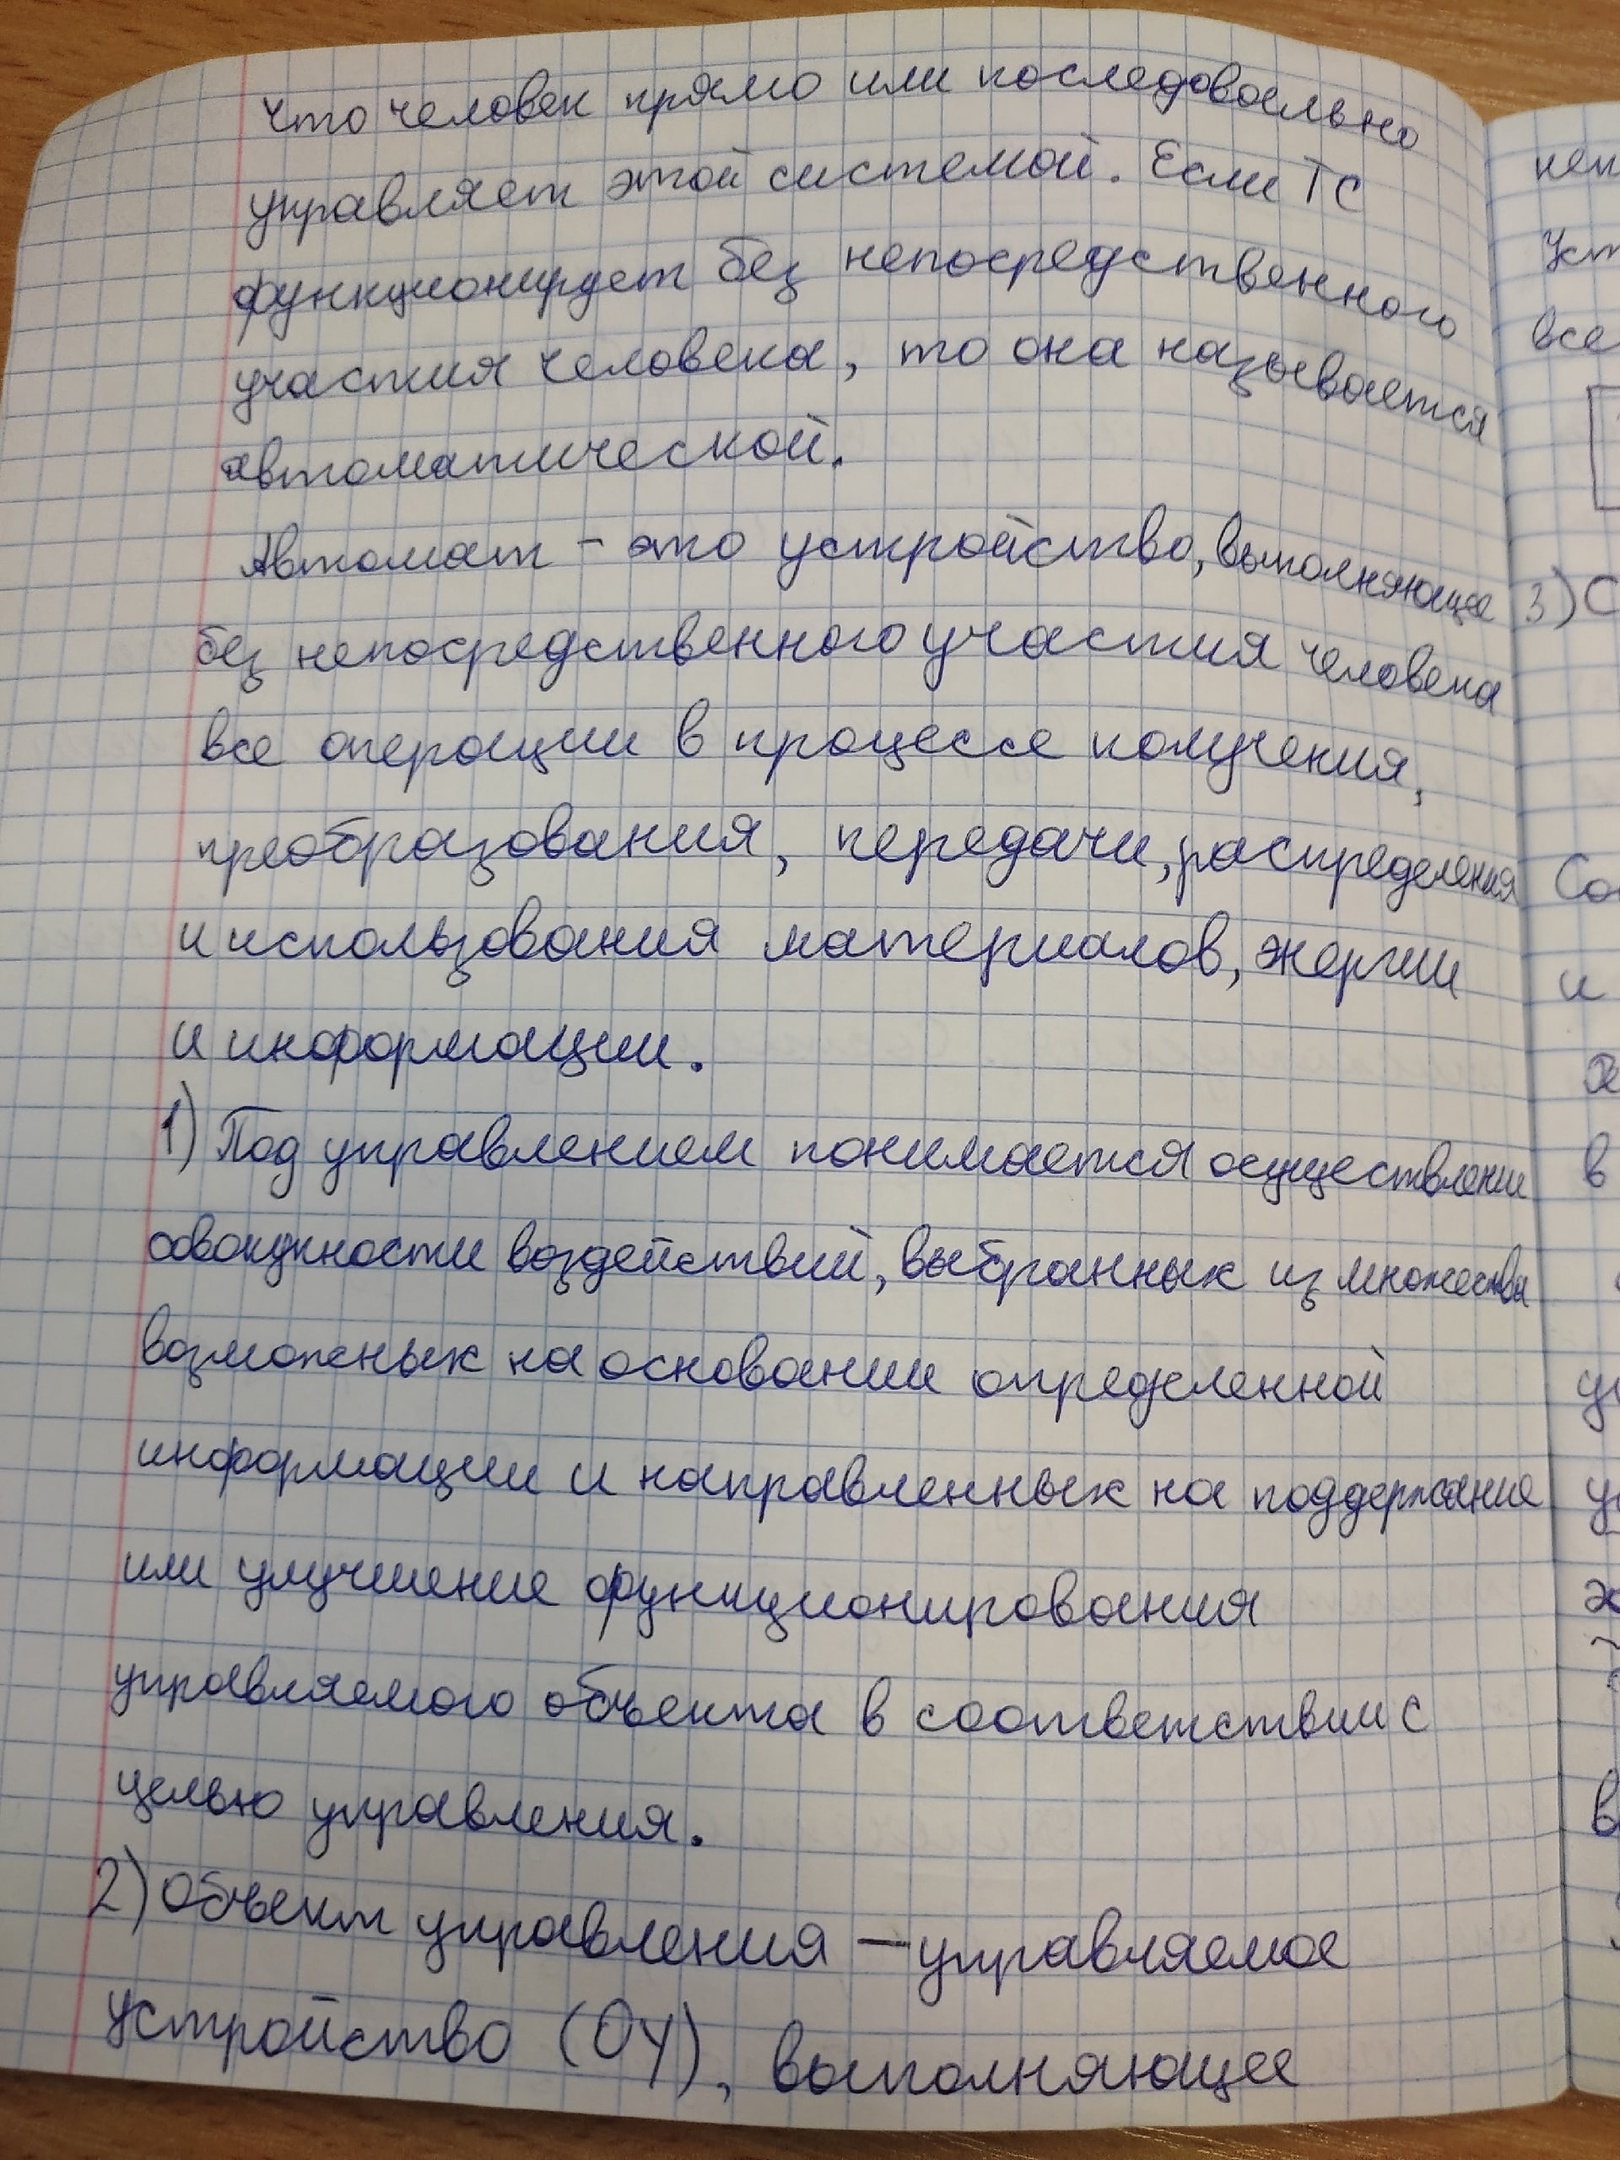 что человек прямо или последовоельно
управляет этой системой. Если ТС
функционирует без непосредственного
участия человека, то она называется
автоматической.
Автомат - это устройство, выполняющее
без непосредственного участия человека
все операции в процессе получения,
преобразования, передачи, распределения
и использования материалов, энергии
и информации.
1) Под управлением понимается осуществление
совокупности воздействий, выбранных из множества
возможных на основании определенной
информации и направленных на поддержание
или улучшение функционирования
управляемого объекта в соответствии с
целью управления.
2) Объект управления — управляемое
устройство (ОУ), выполняющее
неп
Уст
все
3) С
Со
и
в
ук
в